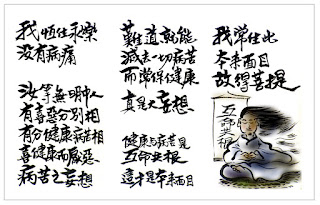 我恆住永樂
没有病痛
汝等無明中人
有喜惡分別相
有分健康病苦相
喜健康而厭惡
病苦之妄想
難道就能
滅去一切病苦
而常保健康
真是大妄想
健康与病苦是
互命共根
這才是本來面目
我常住此
本來面目
故得菩提
互命共根